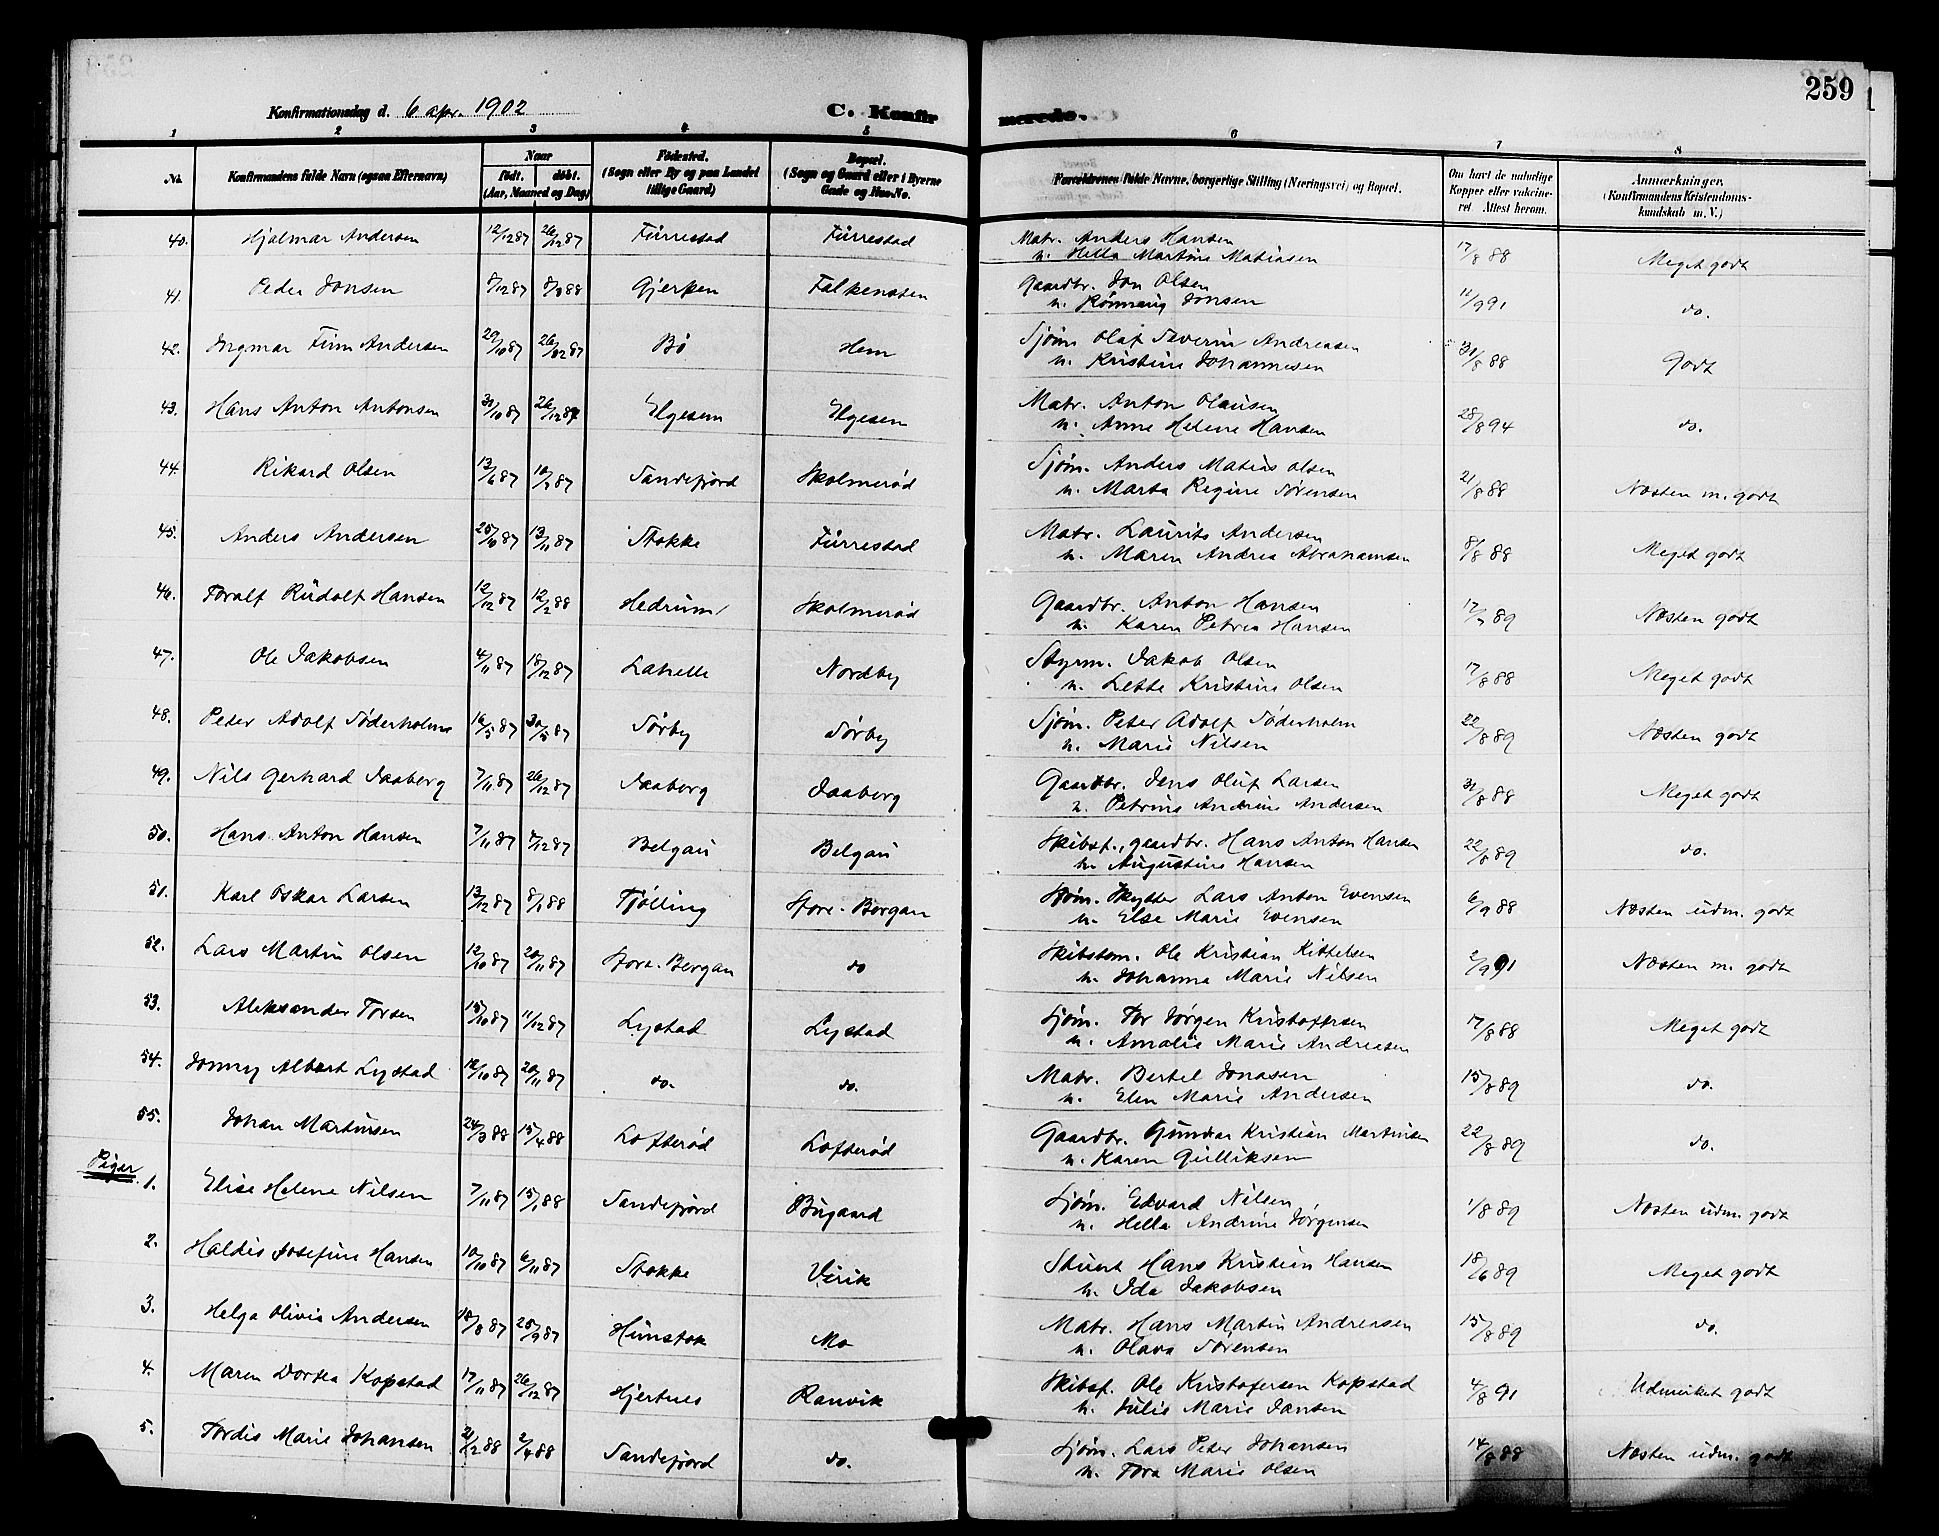 259
Konfirmationsdag d. 6 apr. 1902
C. Konfirmerede.
1 2 3 4 5 6 7 8
No. Konfirmandens fulde Navn (ogsaa Efternavn) Naar født. døbt. (Aar, Maaned og Dag) Fødested. (Sogn eller By og paa Landet tillige Gaard) Bopæl. (Sogn og Gaard eller i Byerne Gade og Hus-No. Forældrenes fulde Navne, borgerlige Stilling (Næringsvei) og Bopæl. Om havt de naturlige Kopper eller vakcineret. Attest herom. Anmærkninger. (Konfirmandens Kristendomskundskab m. V.)
40. Hjalmar Andersen 12/12 87 26/12 87 Furrestad Furrestad Matr. Anders Hansen 17/8 88 Meget godt
u. Hella Martine Matiasen
41. Peder Jonsen 8/12 87 Gjerpen Falkensten Gaardbr. Jon Olsen 11/9 91 do.
u. Rønnaug Jonsen
42. Ingmar Finn Andersen 29/10 87 26/12 87 Bø Hem Sjøm. Olaf Severin Andreasen 31/8 88 Godt
u. Kristine Johannesen
43. Hans Anton Antonsen 31/10 87 26/12 87 Elgesem Elgesem Matr. Anton Olausen 28/8 94 do.
u. Anne Helene Hansen
44. Rikard Olsen 13/6 87 10/7 87 Sandefjord Skolmerød Sjøm. Anders Matias Olsen 21/8 88 Næsten m. godt
u. Marta Regine Sørensen
45. Anders Andersen 25/10 87 13/11 87 Stokke Furrestad Matr. Laurits Andersen 8/8 88 Meget godt
u. Maren Andrea Abrahamsen
46. Toralf Rudolf Hansen 12/12 87 12/2 88 Hedrum Skolmerød Gaardbr. Anton Hansen 17/7 89 Næsten godt
u. Karen Petrea Hansen
47. Ole Jakobsen 4/11 87 18/12 87 Lahelle Nordby Styrm. Jakob Olsen 17/8 88 Meget godt
u. Lette Kristine Olsen
48. Peter Adolf Søderholm 16/5 87 30/5 87 Sørby Sørby Sjøm. Peter Adolf Søderholm 22/8 89 Næsten godt
u. Marie Nilsen
49. Nils Gerhard Jaaberg 7/11 87 26/12 87 Jaaberg Jaaberg Gaardbr. Jens Oluf Larsen 31/8 88 Meget godt
u. Petrine Andrine Andersen
50. Hans Anton Hansen 7/11 87 4/12 87 Belgau Belgau Skibsf., gaardbr. Hans Anton Hansen 22/8 89 do.
u. Augustine Hansen
51. Karl Oskar Larsen 13/12 87 8/1 88 Tjølling Store-Bergan Sjøm. Skytter Lars Anton Evensen 6/9 88 Næsten udm. godt
u. Else Marie Evensen
52. Lars Martin Olsen 12/10 87 20/11 87 Store-Bergan do Skibstøm. Ole Kristian Kittelsen 2/9 91 Næsten m. godt
u. Johanna Marie Nilsen
53. Aleksander Torsen 15/10 87 11/12 87 Lystad Lystad Sjøm. Tor Jørgen Kristoffersen 17/8 88 Meget godt
u. Amalie Marie Andreasen
54. Jonny Albert Lystad 12/10 87 20/11 87 do. do. Matr. Bertel Jonasen 15/8 89 do.
u. Elen Marie Andersen
55. Johan Martinsen 24/3 88 15/4 88 Lofterød Lofterød Gaardbr. Gunnar Kristian Martinsen 22/8 89 do.
u. Karen Gulliksen
Piger
1. Elise Helene Nilsen 7/11 87 15/1 88 Sandefjord Bugaard Sjøm. Edvard Nilsen 1/8 89 Næsten udm. godt
u. Hella Andrine Jørgensen
2. Haldis Josefine Hansen 10/10 87 6/11 87 Stokke Virik Stuert Hans Kristian Hansen 18/6 89 Meget godt
u. Ida Jakobsen
3. Helga Olivia Andersen 18/8 87 25/9 87 Himstok Mo Matr. Hans Martin Andreasen 15/8 89 do.
u. Olava Sørensen
4. Maren Dortea Kopstad 17/11 87 26/12 87 Hjertnes Ranvik Skibsf. Ole Kristofersen Kopstad 4/8 91 Udmerket godt
u. Julie Marie Jansen
5. Tordis Marie Johansen 21/2 88 2/4 88 Sandefjord do. Sjøm. Lars Peter Johansen 14/8 88 Næsten udm. godt
u. Tora Marie Olsen